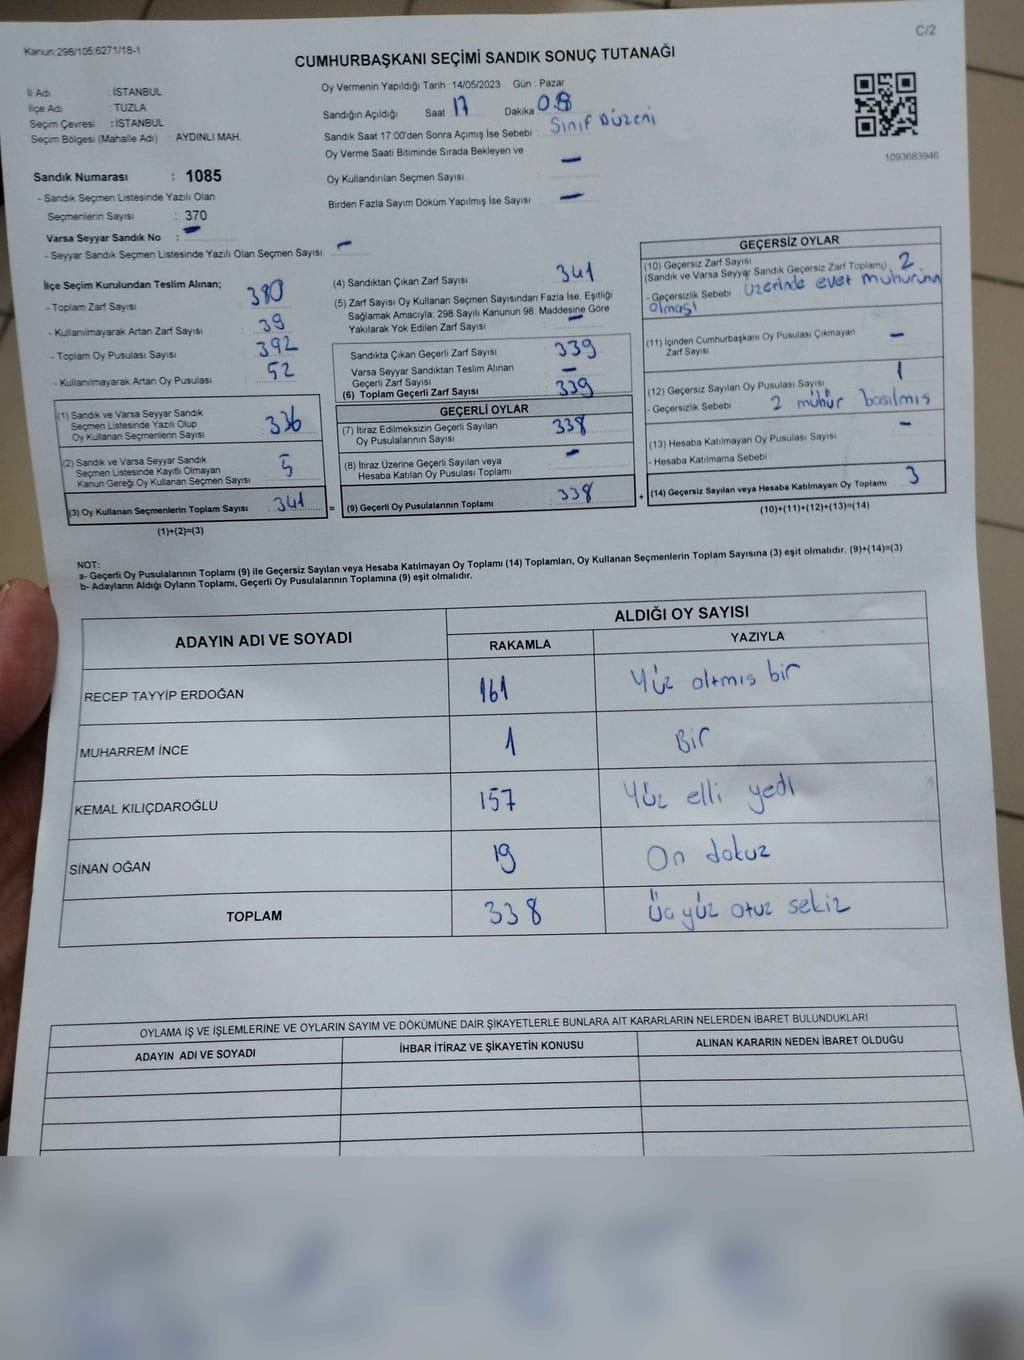 Kanun;298/105;6271/18-1
C/2
CUMHURBAŞKANI SEÇİMİ SANDIK SONUÇ TUTANAĞI
İl Adı : İSTANBUL
İlçe Adı : TUZLA
Seçim Çevresi : İSTANBUL
Seçim Bölgesi (Mahalle Adı) : AYDINLI MAH.
Oy Vermenin Yapıldığı Tarih : 14/05/2023 Gün : Pazar
Sandığın Açıldığı Saat 17 Dakika 08
Sandık Saat 17:00'den Sonra Açımış İse Sebebi : Sınıf Düzeni
Oy Verme Saati Bitiminde Sırada Bekleyen ve
Oy Kullandırılan Seçmen Sayısı : —
Birden Fazla Sayım Döküm Yapılmış İse Sayısı : —
1093683946
Sandık Numarası : 1085
- Sandık Seçmen Listesinde Yazılı Olan
Seçmenlerin Sayısı : 370
Varsa Seyyar Sandık No : —
- Seyyar Sandık Seçmen Listesinde Yazılı Olan Seçmen Sayısı: —
İlçe Seçim Kurulundan Teslim Alınan;
- Toplam Zarf Sayısı : 380
- Kullanılmayarak Artan Zarf Sayısı : 39
- Toplam Oy Pusulası Sayısı : 392
- Kullanılmayarak Artan Oy Pusulası : 52
(1) Sandık ve Varsa Seyyar Sandık
Seçmen Listesinde Yazılı Olup
Oy Kullanan Seçmenlerin Sayısı : 336
(2) Sandık ve Varsa Seyyar Sandık
Seçmen Listesinde Kayıtlı Olmayan
Kanun Gereği Oy Kullanan Seçmen Sayısı : 5
(3) Oy Kullanan Seçmenlerin Toplam Sayısı : 341
(1)+(2)=(3)
(4) Sandıktan Çıkan Zarf Sayısı : 341
(5) Zarf Sayısı Oy Kullanan Seçmen Sayısından Fazla İse, Eşitliği
Sağlamak Amacıyla; 298 Sayılı Kanunun 98. Maddesine Göre
Yakılarak Yok Edilen Zarf Sayısı : —
Sandıkta Çıkan Geçerli Zarf Sayısı : 339
Varsa Seyyar Sandıktan Teslim Alınan
Geçerli Zarf Sayısı : —
(6) Toplam Geçerli Zarf Sayısı : 339
GEÇERLİ OYLAR
(7) İtiraz Edilmeksizin Geçerli Sayılan
Oy Pusulalarının Sayısı : 338
(8) İtiraz Üzerine Geçerli Sayılan veya
Hesaba Katılan Oy Pusulası Toplamı : —
= (9) Geçerli Oy Pusulalarının Toplamı : 338
GEÇERSİZ OYLAR
(10) Geçersiz Zarf Sayısı
(Sandık ve Varsa Seyyar Sandık Geçersiz Zarf Toplamı) : 2
- Geçersizlik Sebebi : Üzerinde evet mührünün
olması
(11) İçinden Cumhurbaşkanı Oy Pusulası Çıkmayan
Zarf Sayısı : —
(12) Geçersiz Sayılan Oy Pusulası Sayısı : 1
- Geçersizlik Sebebi : 2 mühür basılmış
(13) Hesaba Katılmayan Oy Pusulası Sayısı : —
- Hesaba Katılmama Sebebi :
+ (14) Geçersiz Sayılan veya Hesaba Katılmayan Oy Toplamı : 3
(10)+(11)+(12)+(13)=(14)
NOT:
a- Geçerli Oy Pusulalarının Toplamı (9) ile Geçersiz Sayılan veya Hesaba Katılmayan Oy Toplamı (14) Toplamları, Oy Kullanan Seçmenlerin Toplam Sayısına (3) eşit olmalıdır. (9)+(14)=(3)
b- Adayların Aldığı Oyların Toplamı, Geçerli Oy Pusulalarının Toplamına (9) eşit olmalıdır.
ADAYIN ADI VE SOYADI
ALDIĞI OY SAYISI
RAKAMLA YAZIYLA
RECEP TAYYİP ERDOĞAN 161 Yüz altmış bir
MUHARREM İNCE 1 Bir
KEMAL KILIÇDAROĞLU 157 Yüz elli yedi
SİNAN OĞAN 19 On dokuz
TOPLAM 338 Üç yüz otuz sekiz
OYLAMA İŞ VE İŞLEMLERİNE VE OYLARIN SAYIM VE DÖKÜMÜNE DAİR ŞİKAYETLERLE BUNLARA AİT KARARLARIN NELERDEN İBARET BULUNDUKLARI
ADAYIN ADI VE SOYADI İHBAR İTİRAZ VE ŞİKAYETİN KONUSU ALINAN KARARIN NEDEN İBARET OLDUĞU